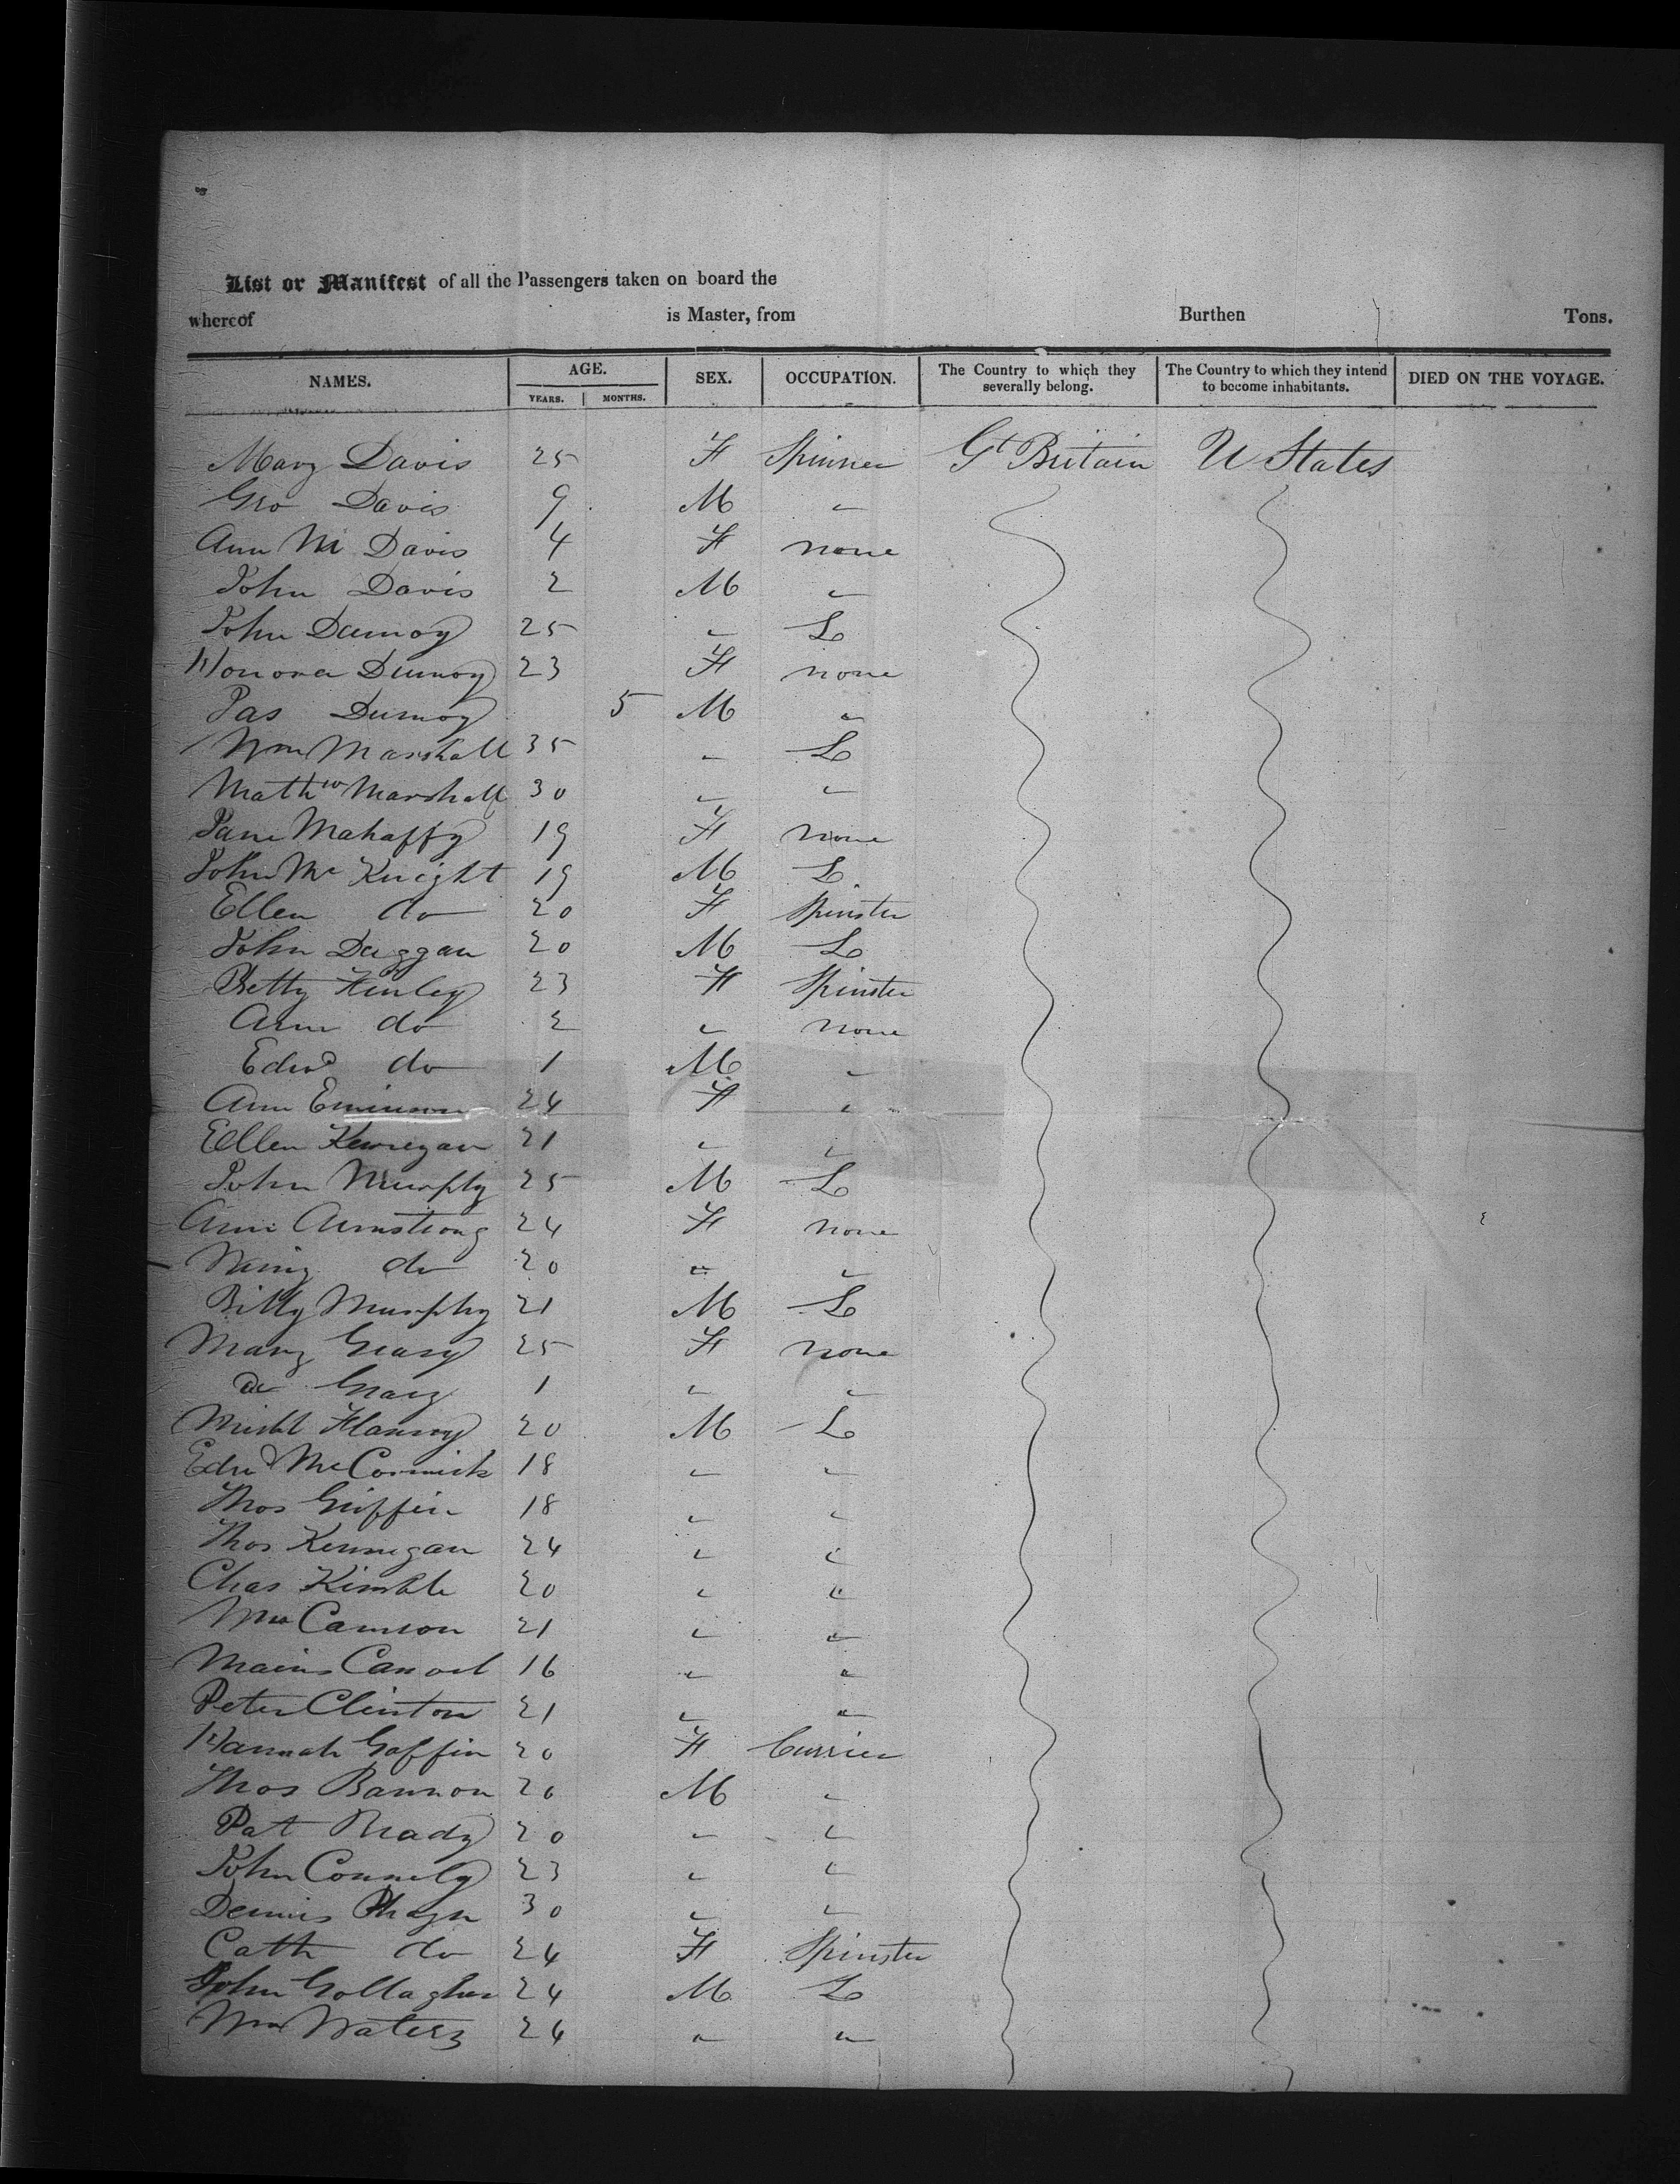 List or Manifest of all the Passengers taken on board the
whereof is Master, from Burthen Tons.
NAMES. AGE. YEARS. MONTHS. SEX. OCCUPATION. The Country to which they severally belong. The Country to which they intend to become inhabitants. DIED ON THE VOYAGE.
Mary Davis 25 F Spinner Gt Britain U States
Geo Davis 9 M "
Ann M Davis 4 F none
John Davis 2 M "
John 25 " L
Honora 23 F none
Jas 5 M "
Wm Marshall 35 " L
Mathw Marshall 30 " "
Jane Mahaffy 19 F none
John Mc Knight 19 M L
Ellen do 20 F Spinster
John Duggan 20 M L
Betty Finley 23 F Spinster
Ann do 2 " none
Edwd do 1 M "
Ann 24 F "
Ellen Kerregan 21 " "
John Murphy 25 M L
Ann Armstrong 24 F none
do 20 " "
Billy Murphy 21 M L
Mary Geary 25 F none
do 1 " "
Michl 20 M L
Edwd McCormick 18 " "
Thos Griffin 18 " "
Thos 24 " "
Chas Kimble 20 " "
Wm 21 " "
16 " "
Peter Clinton 21 " "
Hannah Goffin 20 F Currier
Thos Bannon 26 M "
Pat Brady 20 " "
John Connely 23 " "
Dennis 30 " "
Cath do 24 F Spinster
John Gollagher 24 M L
Wm Waters 24 " "